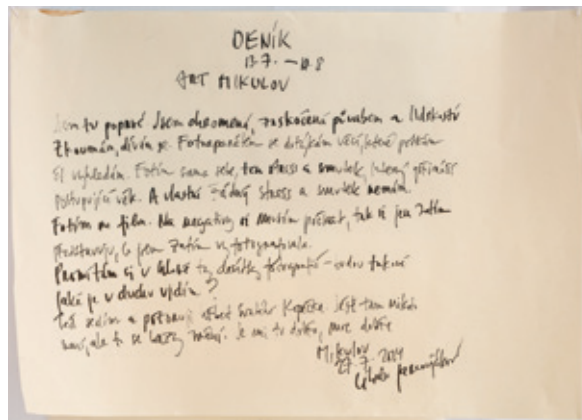 DENÍK
13.7. – 10.8
ART MIKULOV
Jsem tu poprvé. Jsem ohromená, zaskočená půvabem a lidskostí
Zkoumám, dívám se. Fotoaparátem se dotýkám věcí, které potkám
či vyhledám. Fotím sama sebe, ten stress a smutek, který přináší
postupující věk. A vlastně žádný stress a smutek nemám.
Fotím na film. Na negativy si musím počkat, tak si jen zatím
představuju, co jsem zatím vyfotografovala.
Promítám si v hlavě ty desítky fotografií – budou takové
jaké je v duchu vidím?
Teď sedím a pozoruji kopečka. Ještě tam nikdo
není, ale to se brzy změní. Je mi tu dobře, moc dobře
Mikulov
27.7.2024